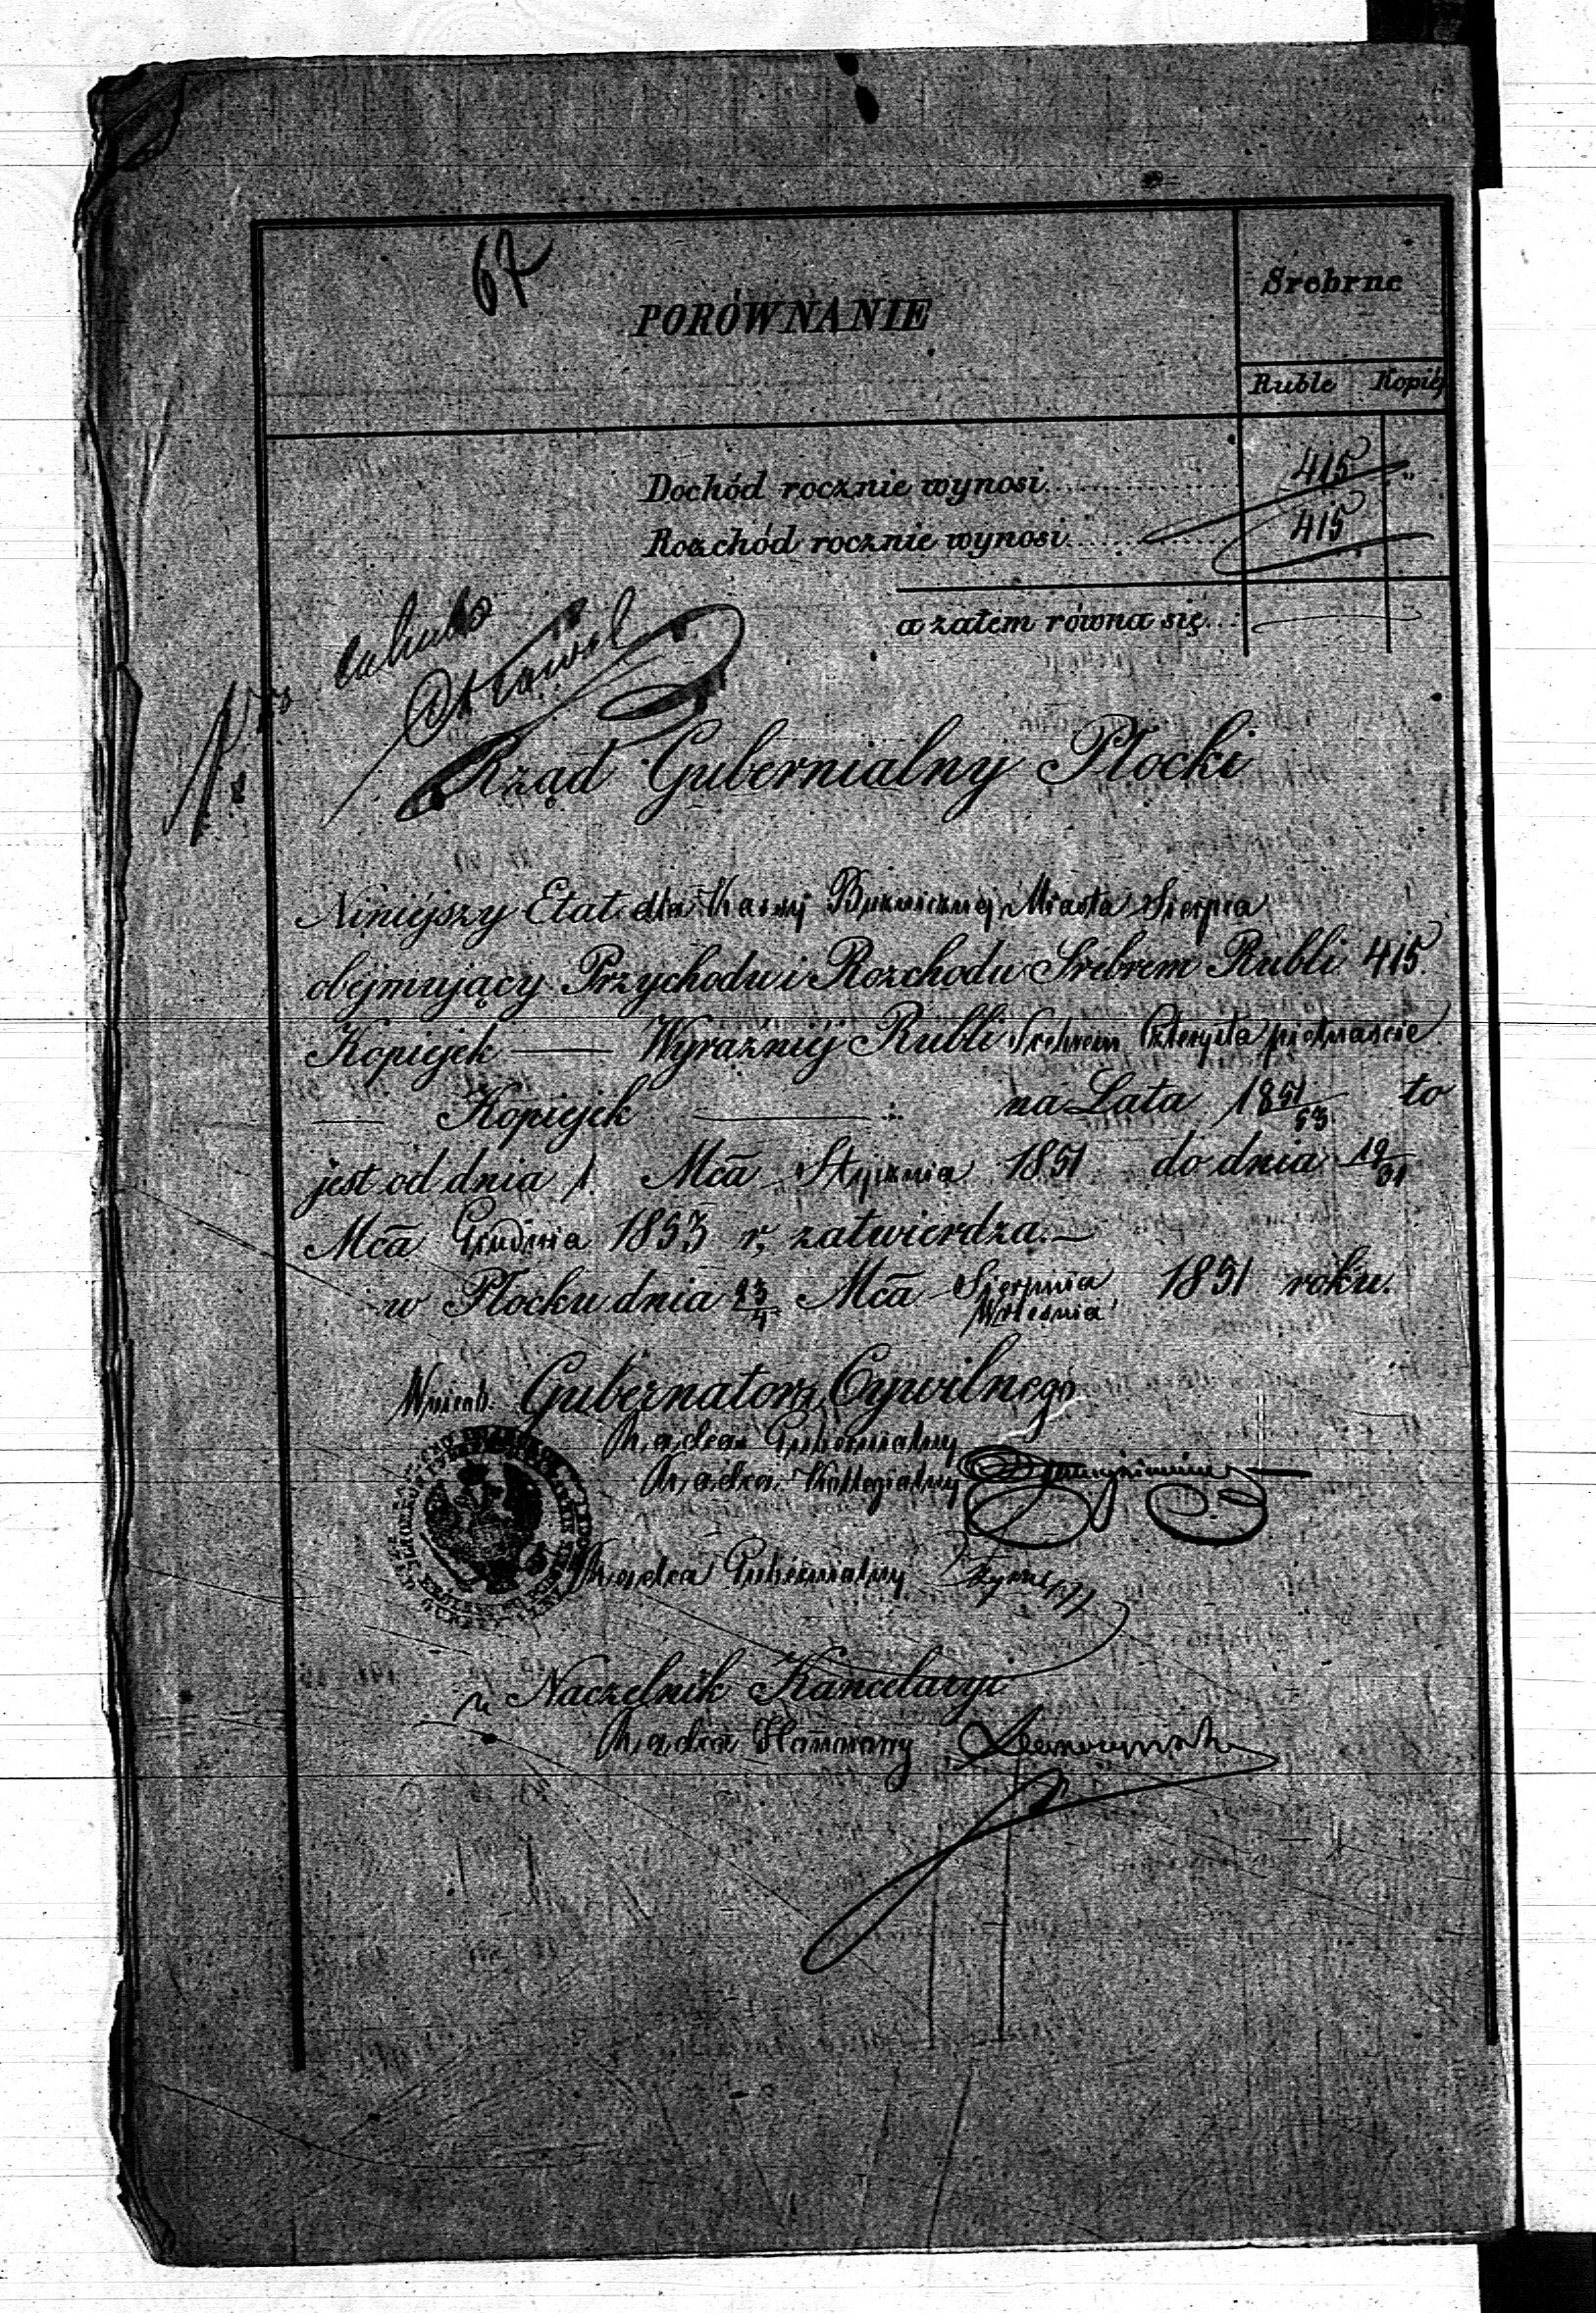 67
PORÓWNANIE
Srebrne
Ruble Kopiéj
Dochód rocznie wynosi 415 "
Rozchód rocznie wynosi 415
a zatem równa się
Rząd Gubernialny Płocki
Niniéjszy Etat dla Kassy Bużnicznej Miasta Sierpca
obéjmujący Przychodu i Rozchodu Srebrem Rubli 415
Kopiejek — Wyraźniéj Rubli Srebrem Czterysta piętnaście
— Kopiejek — na Lata 1851/53 to
jest od dnia 1. Mca Stycznia 1851 do dnia 19/31
Mca Grudnia 1853 r, zatwierdza.—
w Płocku dnia 23/4 Mca Sierpnia/Września 1851 roku.
Gubernatora Cywilnego
Radca Gubernialny
Radca Kollegialny
Radca Gubernialny
Naczelnik Kancelaryi
Radca Honorowy